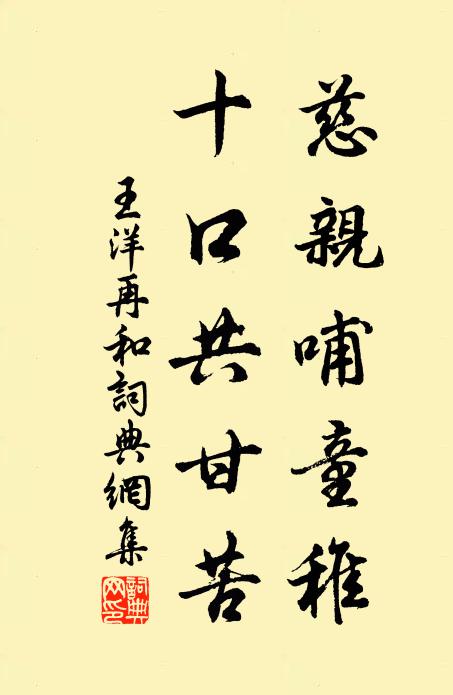 慈親哺童稚
十口共甘苦
王洋再和詞典網集
詞典網印